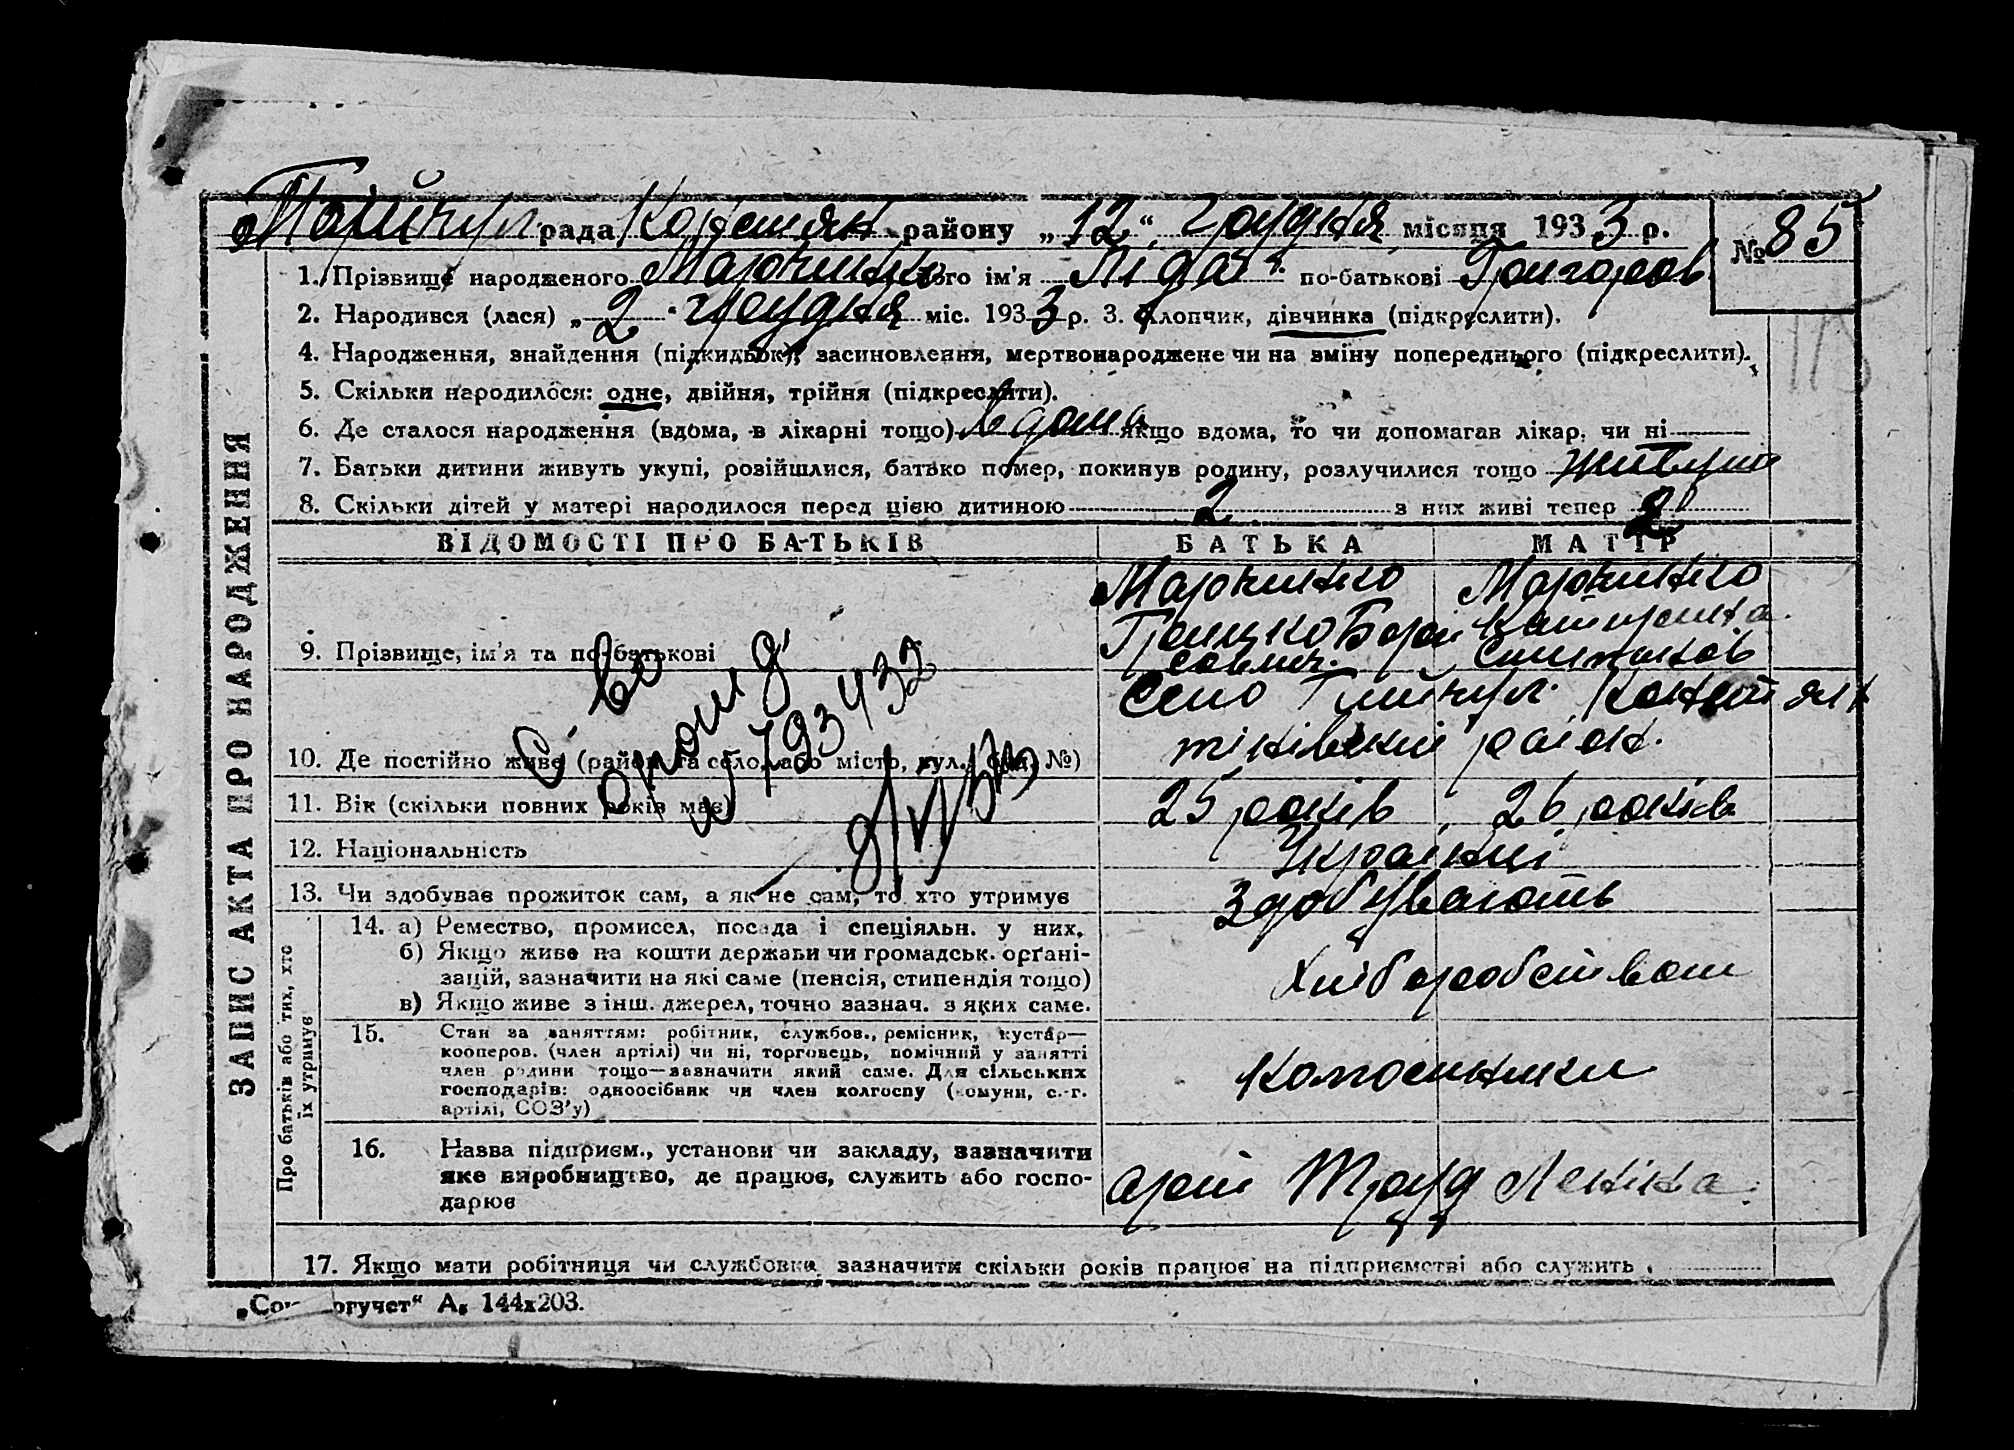 рада району „12“ грудня місяця 1933 р. № 85
1. Прізвище народженого Марочишко його ім'я Ліда по-батькові Григоров.
2. Народився (лася) „2“ грудня міс. 1933 р. 3. Хлопчик, дівчинка (підкреслити).
4. Народження, знайдення (підкидьок), засиновлення, мертвонароджене чи на зміну попереднього (підкреслити).
5. Скільки народилося: одне, двійня, трійня (підкреслити).
6. Де сталося народження (вдома, в лікарні тощо) вдома якщо вдома, то чи допомагав лікар, чи ні
7. Батьки дитини живуть укупі, розійшлися, батько помер, покинув родину, розлучилися тощо живуть
8. Скільки дітей у матері народилося перед цією дитиною 2 з них живі тепер 2
ЗАПИС АКТА ПРО НАРОДЖЕННЯ
ВІДОМОСТІ ПРО БАТЬКІВ БАТЬКА МАТІР
9. Прізвище, ім'я та по-батькові
10. Де постійно живе (район та село, або місто, вул., буд. №) Село район.
11. Вік (скільки повних років має) 25 років 26 років
12. Національність Українці
13. Чи здобуває прожиток сам, а як не сам, то хто утримує Здобувають
Про батьків або тих, хто
їх утримує
14. а) Ремество, промисел, посада і спеціяльн. у них.
б) Якщо живе на кошти держави чи громадськ. орґані-
зацій, зазначити на які саме (пенсія, стипендія тощо) Хліборобством
в) Якщо живе з інш. джерел, точно зазнач. з яких саме.
15. Стан за заняттям: робітник, службов., ремісник, кустар—
кооперов. (член артілі) чи ні, торговець, помічний у занятті
член родини тощо—зазначити який саме. Для сільських
господарів: одноосібник чи член колгоспу (комуни, с.-г.
артілі, СОЗ'у)
16. Назва підприєм., установи чи закладу, зазначити
яке виробництво, де працює, служить або госпо-
дарює Труд Леніна
17. Якщо мати робітниця чи службовка, зазначити скільки років працює на підприємстві або служить
с-во
№ 793432
огучет“ А. 144х203.